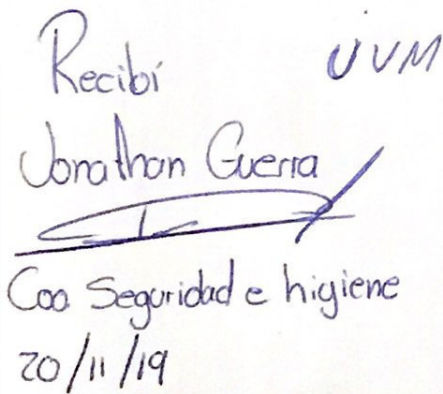 Recibí UVM
Jonathan Guerra
Coo Seguridad e higiene
20/11/19